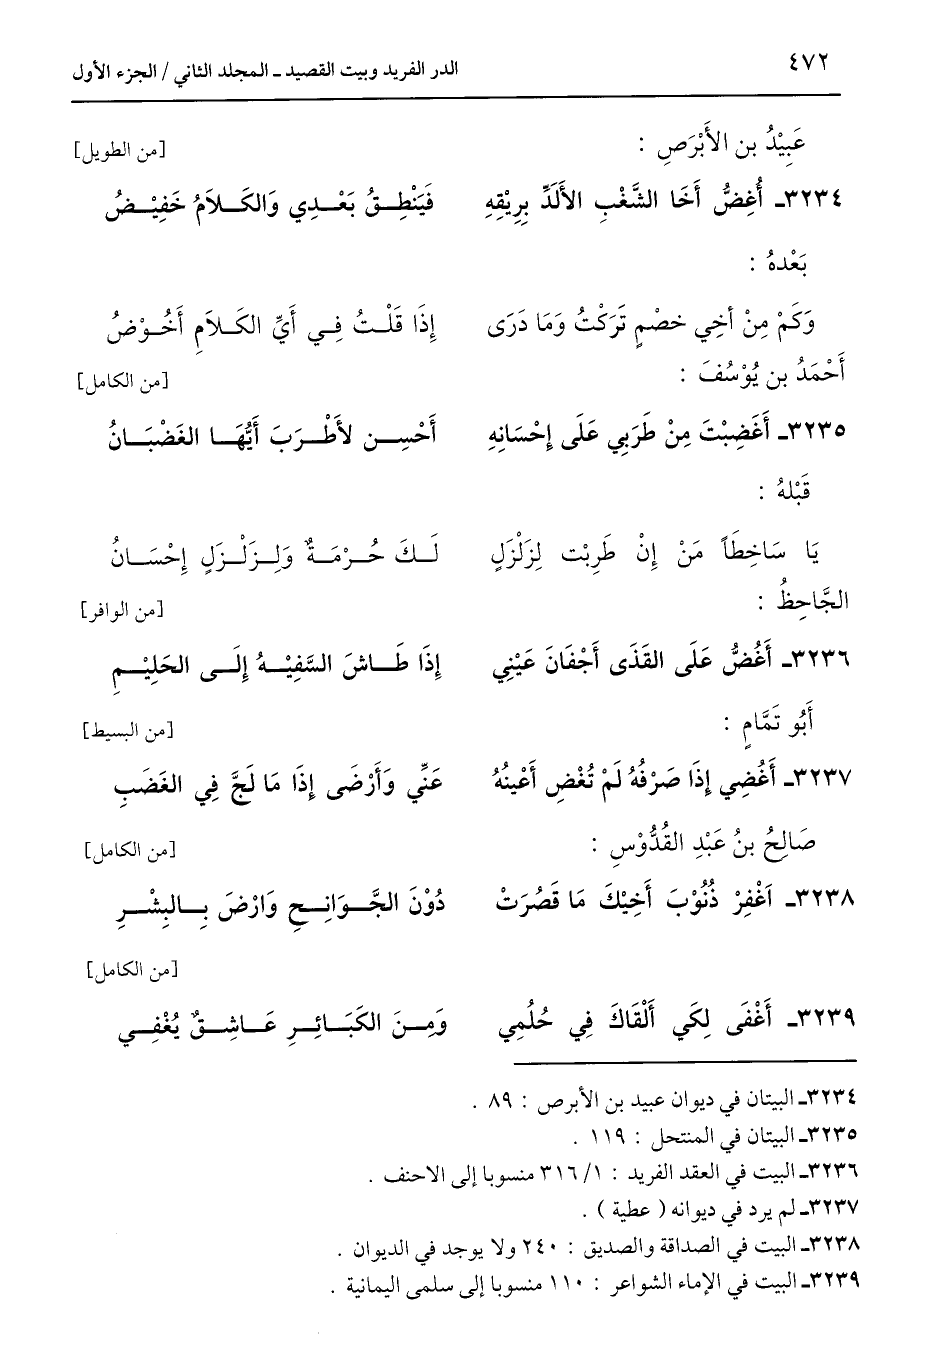 ٤٧٢ الدر الفريد وبيت القصيد ـ المجلد الثاني / الجزء الأول
عَبِيْدُ بن الأَبْرَصِ : [من الطويل]
٣٢٣٤ـ أُغِضُّ أَخَا الشَّغْبِ الأَلَدِّ بِرِيْقِهِ فَيَنْطِقُ بَعْدِي وَالكَلاَمُ خَفِيْضُ
بَعْدهُ :
وَكَمْ مِنْ أخِي خصْمٍ تَرَكْتُ وَمَا دَرَى إِذَا قَلْتُ فِي أَيِّ الكَلاَمِ أَخُوْضُ
أَحْمَدُ بن يُوْسُفَ : [من الكامل]
٣٢٣٥ـ أَغَضِبْتَ مِنْ طَرَبِي عَلَى إِحْسَانِهِ أَحْسِن لأَطْرَبَ أَيُّهَا الغَضْبَانُ
قَبْلهُ :
يَا سَاخِطَاً مَنْ إِنْ طَرِبْت لِزَلْزَلٍ لَكَ حُرْمَةٌ وَلِزَلْزَلٍ إِحْسَانُ
الجَّاحِظُ : [من الوافر]
٣٢٣٦ـ أَغُضُّ عَلَى القَذَى أَجْفَانَ عَيْنِي إِذَا طَاشَ السَّفِيْهُ إِلَى الحَلِيْمِ
أَبُو تَمَّامٍ : [من البسيط]
٣٢٣٧ـ أَغُضِي إِذَا صَرْفُهُ لَمْ تُغْضِ أَعْينهُ عَنِّي وَأَرْضَى إِذَا مَا لَجَّ فِي الغَضَبِ
صَالِحُ بنُ عَبْدِ القُدُّوْسِ : [من الكامل]
٣٢٣٨ـ اَغْفِرْ ذُنُوْبَ أَخِيْكَ مَا قَصُرَتْ دُوْنَ الجَّوَانِحِ وَارْضَ بِالبِشْرِ
[من الكامل]
٣٢٣٩ـ أَغْفَى لِكَي أَلْقَاكَ فِي حُلُمِي وَمِنَ الكَبَائِرِ عَاشِقٌ يُغْفِي
٣٢٣٤ـ البيتان في ديوان عبيد بن الأبرص : ٨٩ .
٣٢٣٥ـ البيتان في المنتحل : ١١٩ .
٣٢٣٦ـ البيت في العقد الفريد : ١/ ٣١٦ منسوبا إلى الاحنف .
٣٢٣٧ـ لم يرد في ديوانه ( عطية ) .
٣٢٣٨ـ البيت في الصداقة والصديق : ٢٤٠ ولا يوجد في الديوان .
٣٢٣٩ـ البيت في الإماء الشواعر : ١١٠ منسوبا إلى سلمى اليمانية .